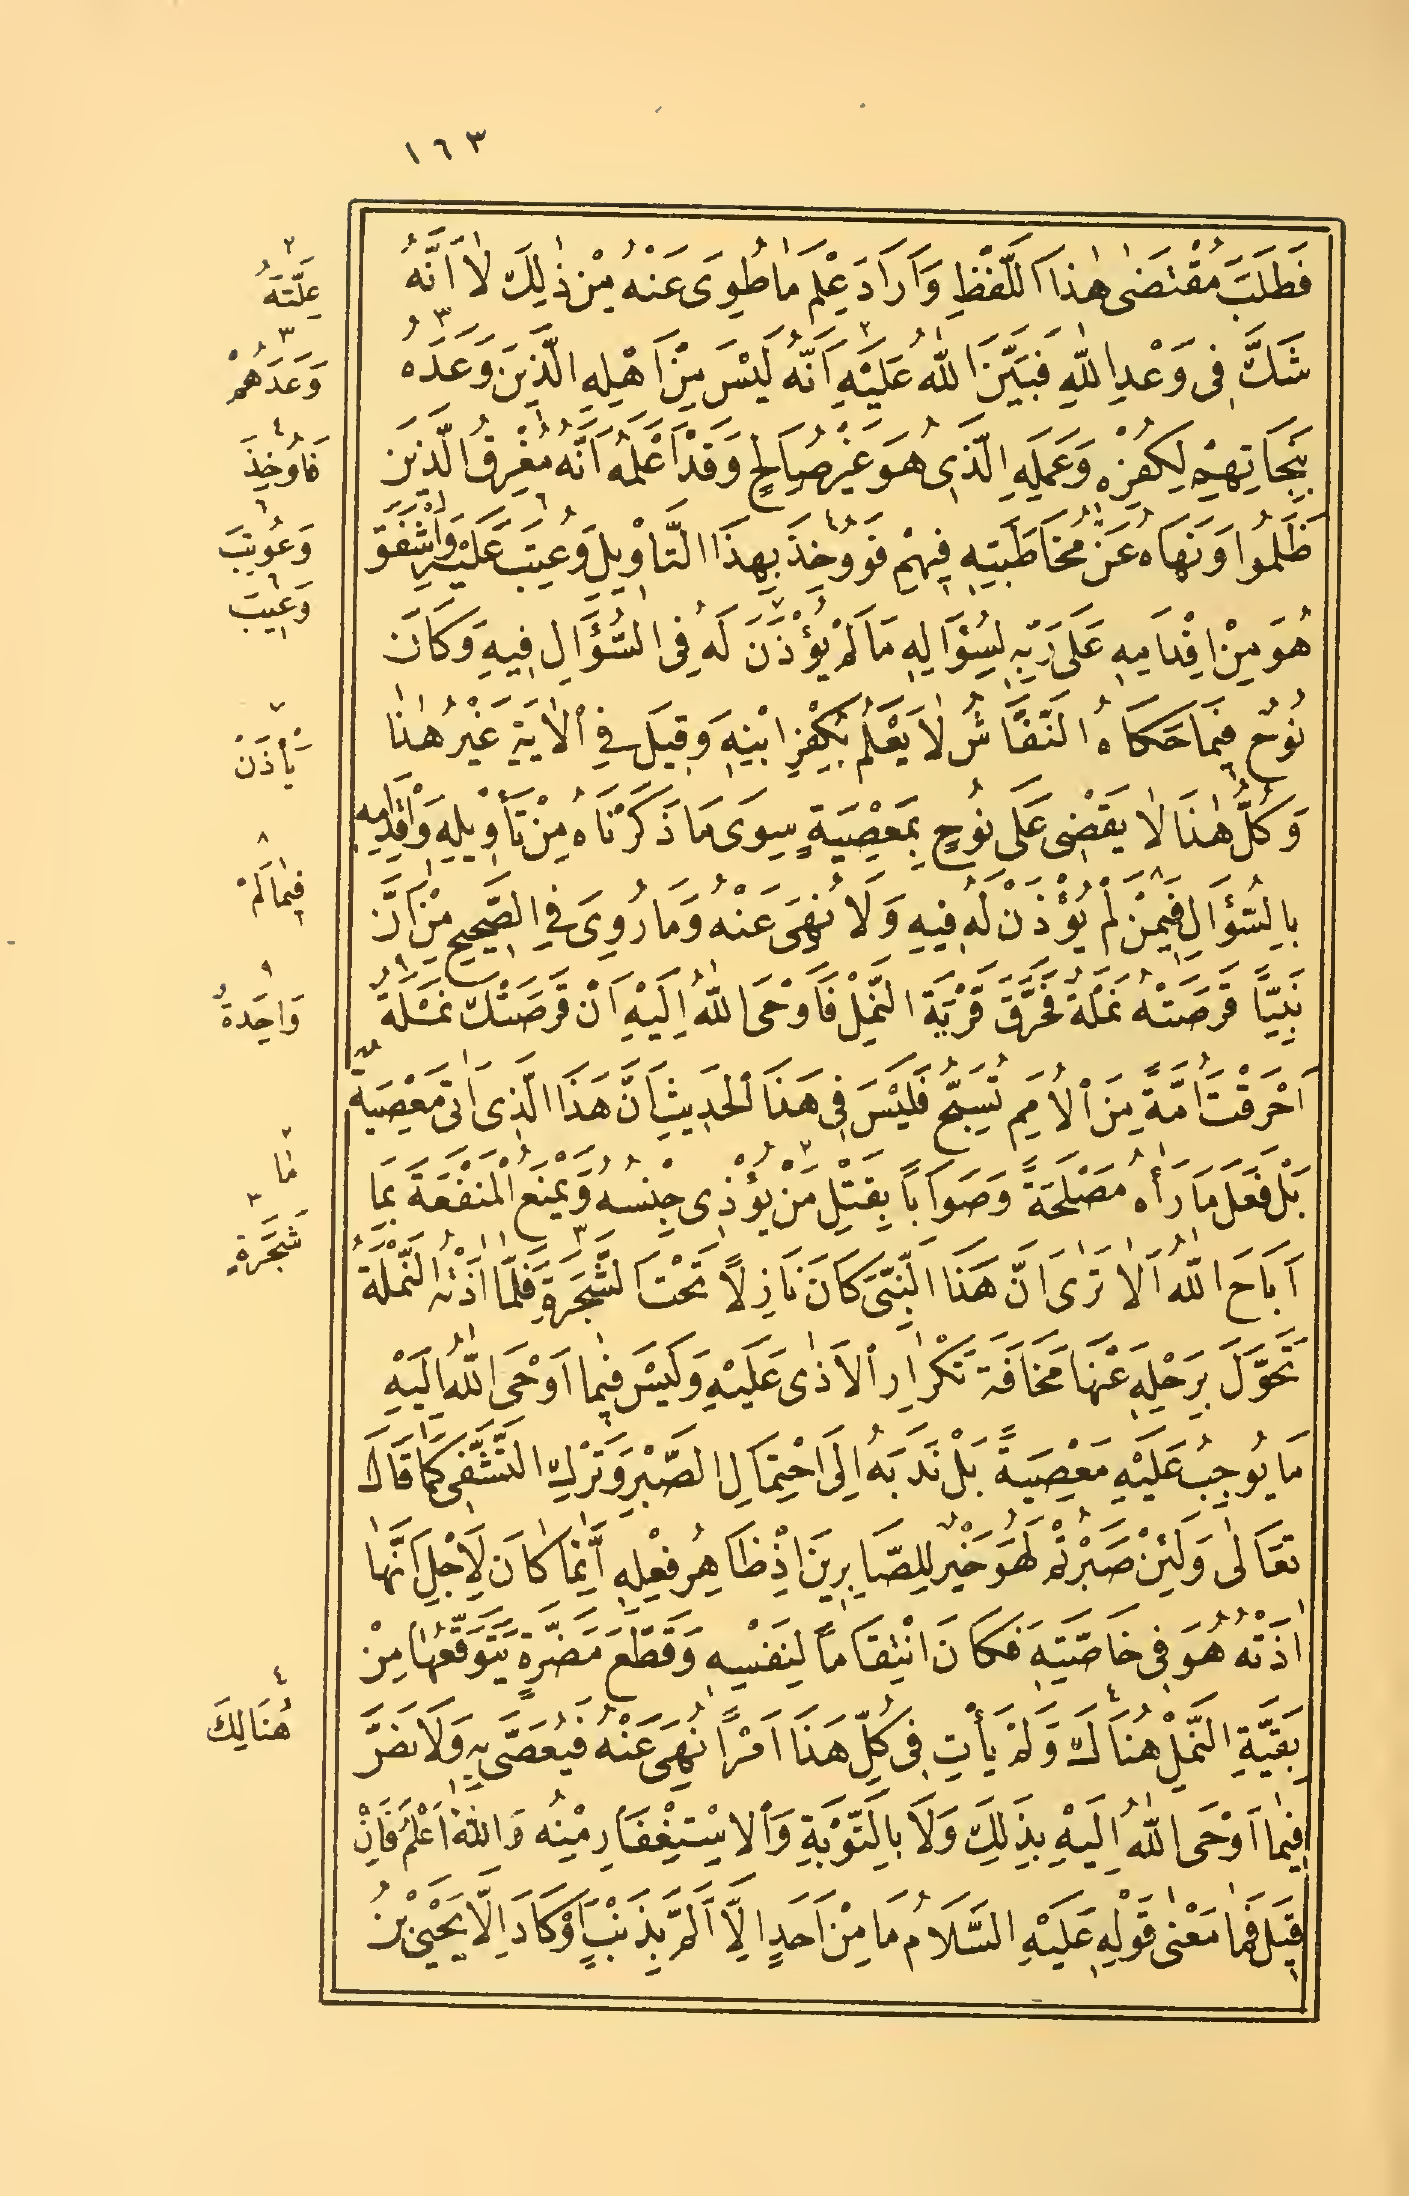 ١٦٣
فَطَلَبَ مُقْتَضَى هٰذَا اللَّفْظِ وَاَرَادَ عِلْمَ مَا طُوِىَ عَنْهُ مِنْ ذٰلِكَ لَا اَنَّهُ
شَكَّ فِى وَعْدِ اللّٰهِ فَبَيَّنَ اللّٰهُ عَلَيْهِ ٢ اَنَّهُ لَيْسَ مِنْ اَهْلِهِ الَّذِينَ وَعَدَهُ ٣
بِنَجَاتِهِمْ لِكُفْرِهِ وَعَمَلِهِ الَّذِى هُوَ غَيْرُ صَالِحٍ وَقَدْ اَعْلَمَهُ اَنَّهُ مُغْرِقُ الَّذِينَ
ظَلَمُوا وَنَهَاهُ عَنْ مُخَاطَبَتِهِ فِيهِمْ فَوُوخِذَ ٤ بِهٰذَا التَّأْوِيلِ وَعُتِبَ ٦ عَلَيْهِ وَاَشْفَقَ
هُوَ مِنْ اِقْدَامِهِ عَلَى رَبِّهِ لِسُؤَالِهِ مَا لَمْ يُؤْذَنْ ٧ لَهُ فِى السُّؤَالِ فِيهِ وَكَانَ
نُوحٌ فِيمَا حَكَاهُ النَّقَّاشُ لَا يَعْلَمُ بِكُفْرِ ابْنِهِ وَقِيلَ فِى الْاٰيَةِ غَيْرُ هٰذَا
وَكُلُّ هٰذَا لَا يَقْضِى عَلَى نُوحٍ بِمَعْصِيَةٍ سِوَى مَا ذَكَرْنَاهُ مِنْ تَأْوِيلِهِ وَاِقْدَامِهِ
بِالسُّؤَالِ فِيمَنْ لَمْ ٨ يُؤْذَنْ لَهُ فِيهِ وَلَا نُهِىَ عَنْهُ وَمَا رُوِىَ فِى الصَّحِيحِ مِنْ اَنَّ
نَبِيًّا قَرَصَتْهُ نَمْلَةٌ فَحَرَّقَ قَرْيَةَ النَّمْلِ فَاَوْحَى اللّٰهُ اِلَيْهِ اَنْ قَرَصَتْكَ نَمْلَةٌ ٩
اَحْرَقْتَ اُمَّةً مِنَ الْاُمَمِ تُسَبِّحُ فَلَيْسَ فِى هٰذَا الْحَدِيثِ اَنَّ هٰذَا الَّذِى اَتَى مَعْصِيَةٌ
بَلْ فَعَلَ مَا رَاٰهُ مَصْلَحَةً وَصَوَابًا بِقَتْلِ مَنْ ٢ يُؤْذِى جِنْسُهُ وَيَمْنَعُ الْمَنْفَعَةَ بِمَا
اَبَاحَ اللّٰهُ اَلَا تَرَى اَنَّ هٰذَا النَّبِىَّ كَانَ نَازِلًا تَحْتَ الشَّجَرَةِ ٣ فَلَمَّا اٰذَتْهُ النَّمْلَةُ
تَحَوَّلَ بِرَحْلِهِ عَنْهَا مَخَافَةَ تَكْرَارِ الْاَذَى عَلَيْهِ وَلَيْسَ فِيمَا اَوْحَى اللّٰهُ اِلَيْهِ
مَا يُوجِبُ عَلَيْهِ مَعْصِيَةً بَلْ نَدَبَهُ اِلَى احْتِمَالِ الصَّبْرِ وَتَرْكِ التَّشَفِّى كَمَا قَالَ
تَعَالَى وَلَئِنْ صَبَرْتُمْ لَهُوَ خَيْرٌ لِلصَّابِرِينَ اِذْ ظَاهِرُ فِعْلِهِ اِنَّمَا كَانَ لِاَجْلِ اَنَّهَا
اٰذَتْهُ هُوَ فِى خَاصَّتِهِ فَكَانَ انْتِقَامًا لِنَفْسِهِ وَقَطْعَ مَضَرَّةٍ يَتَوَقَّعُهَا مِنْ
بَقِيَّةِ النَّمْلِ هُنَاكَ ٤ وَلَمْ يَأْتِ فِى كُلِّ هٰذَا اَمْرًا نُهِىَ عَنْهُ فَيُعَصَّى بِهِ وَلَا نَصَّ
فِيمَا اَوْحَى اللّٰهُ اِلَيْهِ بِذٰلِكَ وَلَا بِالتَّوْبَةِ وَالْاِسْتِغْفَارِ مِنْهُ وَاللّٰهُ اَعْلَمُ فَاِنْ
قِيلَ فَمَا مَعْنٰى قَوْلِهِ عَلَيْهِ السَّلَامُ مَا مِنْ اَحَدٍ اِلَّا اَلَمَّ بِذَنْبٍ اَوْ كَادَ اِلَّا يَحْيَى بْنُ
٢ عِلَّتَهُ
٣ وَعَدَهُمْ
٤ فَاُوخِذَ
٦ وَعُوتِبَ
٦ وَعِيبَ
٧ يَأْذَنْ
٨ فِيمَا لَمْ
٩ وَاحِدَةٌ
٢ مَا
٣ شَجَرَةٍ
٤ هُنَالِكَ